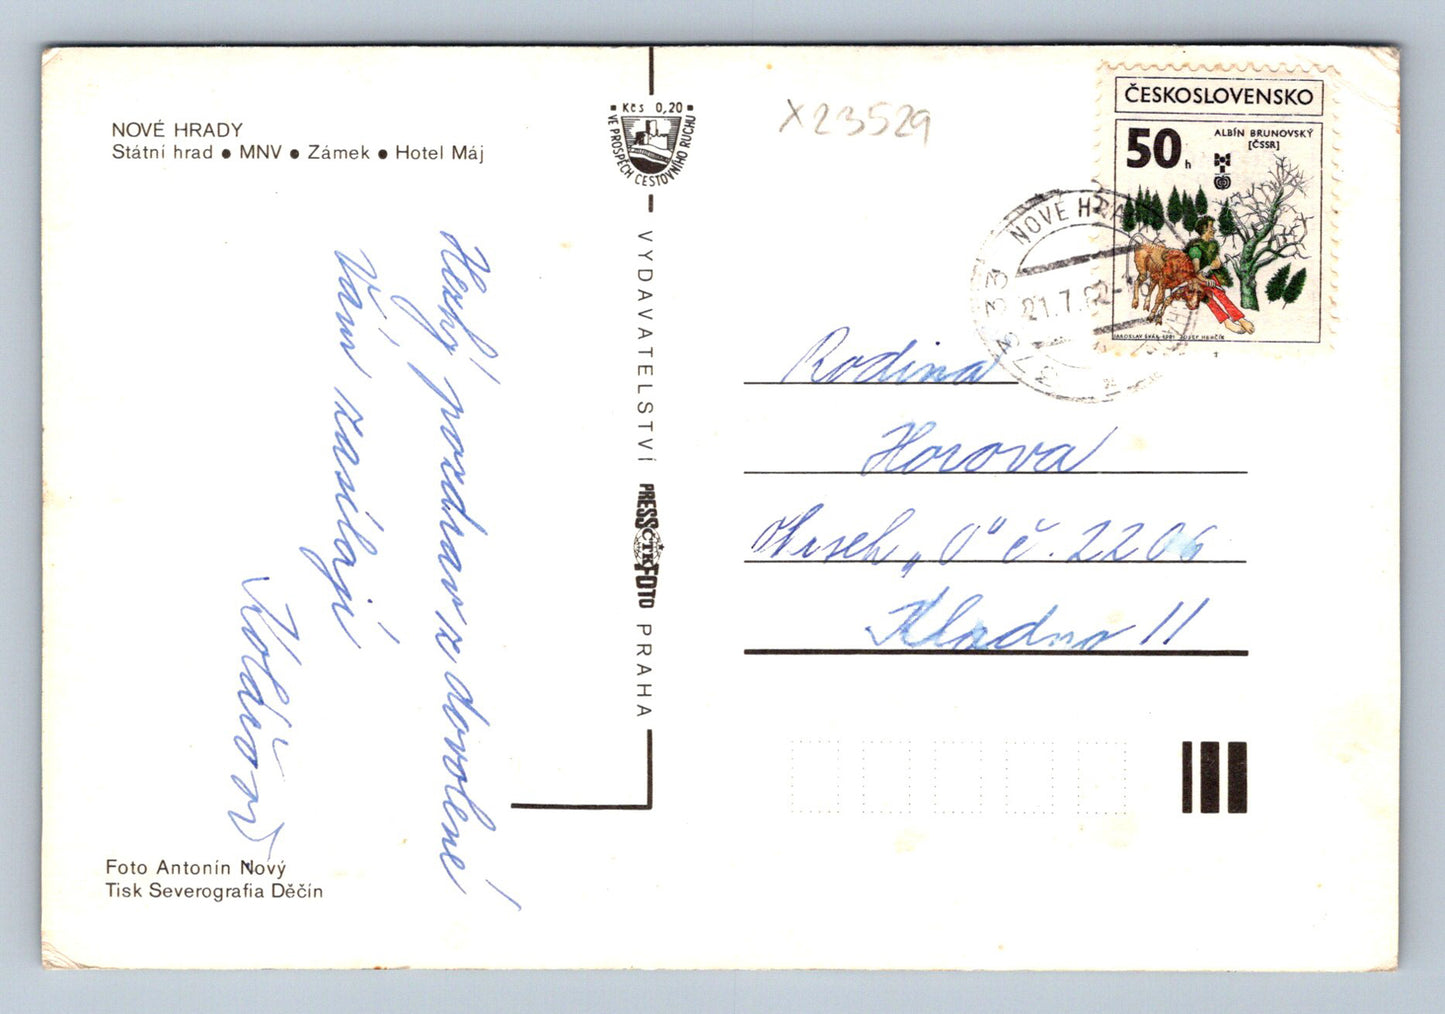 NOVÉ HRADY
Státní hrad ● MNV ● Zámek ● Hotel Máj
Hezký pozdrav z dovolené
Vám zasílají
Kolářovi
Foto Antonín Nový
Tisk Severografia Děčín
Kčs 0,20
VE PROSPĚCH CESTOVNÍHO RUCHU
VYDAVATELSTVÍ PRESSFOTO PRAHA
ČTK
X23529
ČESKOSLOVENSKO
50 h
ALBÍN BRUNOVSKÝ
[ČSSR]
JAROSLAV ŠVÁB 1981 JOSEF HERČÍK
1
NOVÉ HRADY
373 33
21.7.82-16
Rodina
Horova
"O" č. 2206
Kladno II